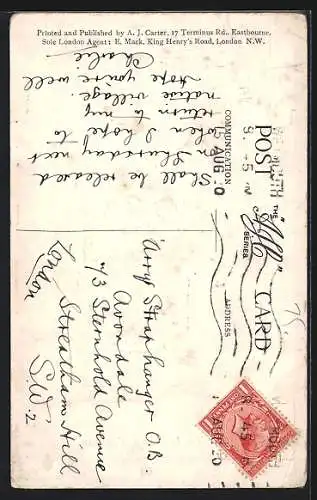 Printed and Published by A. J. Carter, 17 Terminus Rd., Eastbourne.
Sole London Agent: E. Mack, King Henry's Road, London N.W.
THE "AJC" SERIES
POST CARD
COMMUNICATION
ADDRESS
Shall be released
on Thursday next
when I hope to
return to my
native village.
Hope you're well
Charlie
Straphanger O.B.
Avondale
73 Sternhold Avenue
Streatham Hill
London S.W.2
AUG 20